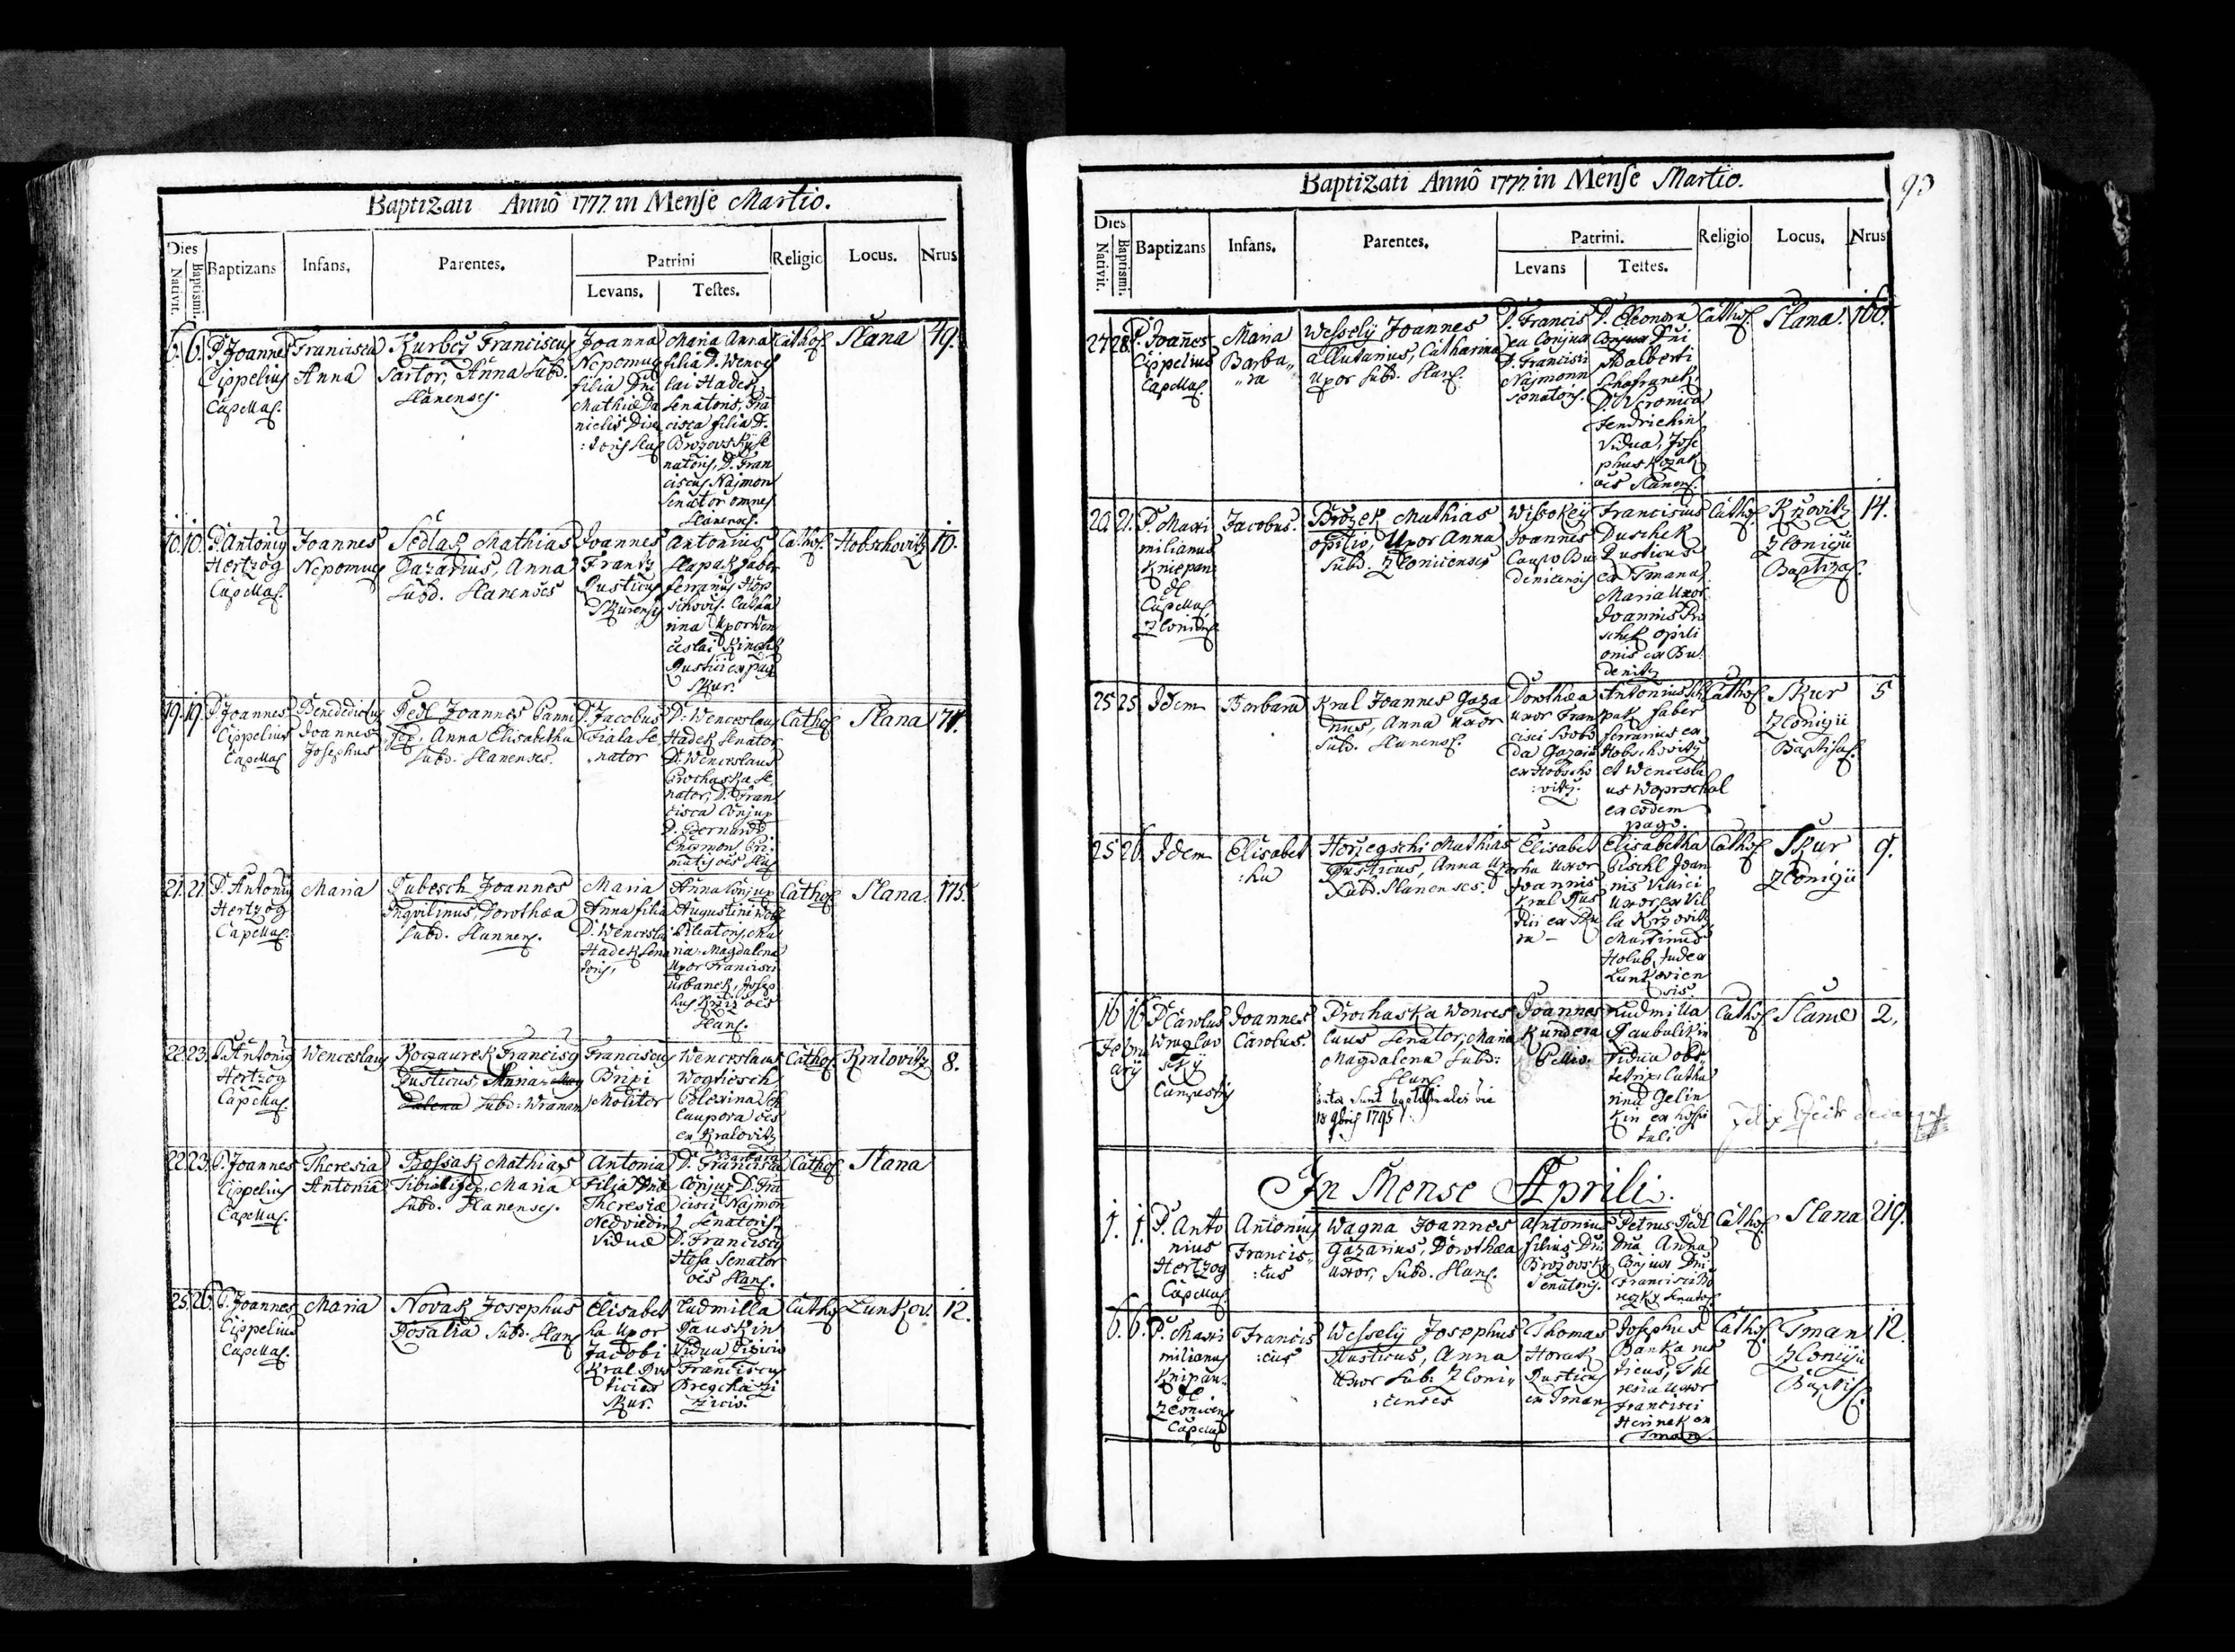 Baptizati Annô 1777. in Mense Martio.
Dies
Nativit.
Baptismi.
Baptizans
Infans.
Parentes.
Patrini
Levans.
Testes.
Religio
Locus.
Nrus
6. 6.
P. Joannes
Cippelius
Capellas.
Francisca
Anna
Kurbes Franciscus
Sartor, Anna Subd.
Slanenses.
Joanna
Nepomuc
filia Dni
Mathiæ Da
nielis Dire
:toris Slas
Maria Anna
filia D. Wences
lai Hadek
Senatoris, Fra
cisca filia D.
Brozovsky Se
natoris, D. Fran
ciscus Najmon
Senator omnes
Slanenses.
Cathos.
Slana
49.
10. 10.
P. Antoniy
Hertzog
Capellas.
Joannes
Nepomuc
Sedlak Mathias
Gazarius, Anna
Subd. Slanenses
Joannes
Frantz
Rusticus
Skurensis
Antonius
Slapak faber
ferrarius Hop
schovis. Catha
rina Uxor Wen
ceslai
Rustici ex pago
Skur.
Cathos.
Hobschovitz
10.
19. 19.
P. Joannes
Cippelius
Capellas
Benedictus
Joannes
Josephus
Pedl Joannes Panni
fex, Anna Elisabetha
Subd. Slanenses.
D. Jacobus
Fiala Se
nator
D. Wenceslaus
Hadek Senator
D. Wenceslaus
Prochaska Se
nator, D. Fran
cisca Conjux
D. Bernardi
Pri
matis oes Slas
Cathos
Slana
174.
21. 21.
P. Antoniy
Hertzog
Capellas.
Maria
Pubesch Joannes
Inqvilinus, Dorothæa
Subd. Slannens.
Maria
Anna filia
D. Wencesla
Hadek Sena
toris,
Anna Conjux
Augustini Wolf
Pileatoris, Ma
ria Magdalena
Uxor Francisci
Urbanek, Josep
hus Kziz oes
Slans.
Cathos
Slana.
175.
22. 23.
P. Antoniy
Hertzog
Capellas.
Wenceslaus
Koczaurek Francisc
Rusticus, Anna Mag
dalena Subd: Wranan
Franciscus
Brixi
Molitor
Wenceslaus
Wogtiesch
Polexina Sek
Caupora oes
ex Kralovitz
Cathos
Kmlovitz
8.
22. 23.
P. Joannes
Cippelius
Capellas.
Theresia
Antonia
Bossak Mathias
Tibialifex, Maria
Subd. Slanenses.
Antonia
filia Dnæ
Theresiæ
Nedviedin
Viduæ
Barbara
D. Francisca
Conjux D. Fra
cisci Najmon
Senatoris
D. Franciscus
Hosa Senator
oes Slans.
Cathos.
Slana
25. 26.
P. Joannes
Cippelius
Capellas.
Maria
Novak Josephus
Rosalia Subd. Slans
Elisabet
ha Uxor
Jacobi
Kral Rus
tici ex
Skur.
Ludmilla
Pauskin
Vidua
Franciscus
Pregcha
Cathos
Lunkov.
12.
Baptizati Annô 1777. in Mense Martio.
93
Dies
Nativit.
Baptismi.
Baptizans
Infans.
Parentes.
Patrini.
Levans
Testes.
Religio
Locus.
Nrus
27 28.
P. Joañes
Cippelius
Capellas.
Maria
Barba„
„ra
Wesselÿ Joannes
allutanus, Catharina
Uxor Subd. Slans.
D. Francis
ca Conjux
D. Francisci
Najmonn
Senatoris.
D. Eleonora
Conjux Dni
Adalberti
Schafranek,
D. Veronica
Jendrichin
Vidua, Jose
phus Kozak
oes Slanens.
Cathos.
Slana.
160.
20. 21.
P. Maxi
milianus
Kniepan
dl
Capellas
Zlonicis
Jacobus.
Brozek Mathias
opilio, Uxor Anna
Subd. Zlonicenses
Wissokeÿ
Joannes
Caupo Bu
denicensis
Franciscus
Duschek
Rusticus
ex Tmana
Maria Uxor
Joannis Pro
schek opili
onis ex Bu
denitz
Cathos.
Krzovitz
Zlonigii
Baptizas.
14.
25 25
Idem
Barbara
Kral Joannes Gaza
rius, Anna uxor
Subd. Slanens.
Dorothæa
uxor Fran
cisci Swobo
da Gazarii
ex Hobscho
:vitz.
Antonius Sla
pak faber
ferrarius ex
Hobschovitz
et Wencesla
us Woprschal
ex eodem
pago.
Cathos
Skur
Zlonigii
Baptisas.
5
25 26.
Idem
Elisabet
:ha
Horzegschi Mathias
Rusticus, Anna Uxor
Subd. Slanenses.
Elisabet
ha Uxor
Joannis
Kral Rus
tici ex Sku
ra
Elisabetha
Pischl Joan
nis Villici
uxor ex Vil
la Krzovitz
Martinus
Holub, Judex
Lunkovien
sis
Cathos
Skur
Zlonigii
9.
16 16
Febru
arij
P. Carolus
Wraglav
skÿ
Campestris
Joannes
Carolus
Prochaska Wences
laus Senator, Maria
Magdalena Subd:
Slans.
Joannes
Kundera
Pellio.
Ludmilla
Paubalikin
Vidua obs
tetrix Catha
rina Gelin
kin ex hospi
tali
Cathos
Slanæ
2.
In Mense Aprili.
1. 1.
P. Anto
nius
Hertzog
Capellas
Antonius
Francis„
:cus
Wagna Joannes
Gazarius, Dorothæa
uxor, Subd. Slans.
Antonius
filius Dni
Brozovsky
Senatoris.
Petrus Pedl
Dna Anna
Conjux Dni
Francisci Bo
reczky Senatos.
Cathos.
Slana
219.
6. 6.
P. Maxi
milianus
Knipan„
dl
Zlonicens
Capellas
Francis
:cus
Wesselÿ Josephus
Rusticus, Anna
Uxor Sub: Zloni„
:censes
Thomas
Horak
Rusticus
ex Tman
Josephus
Banka rus
ticus, The
resia uxor
Francisci
Herinek ex
Tman.
Cathos.
Tman
Zlonigii
Baptis.
12.